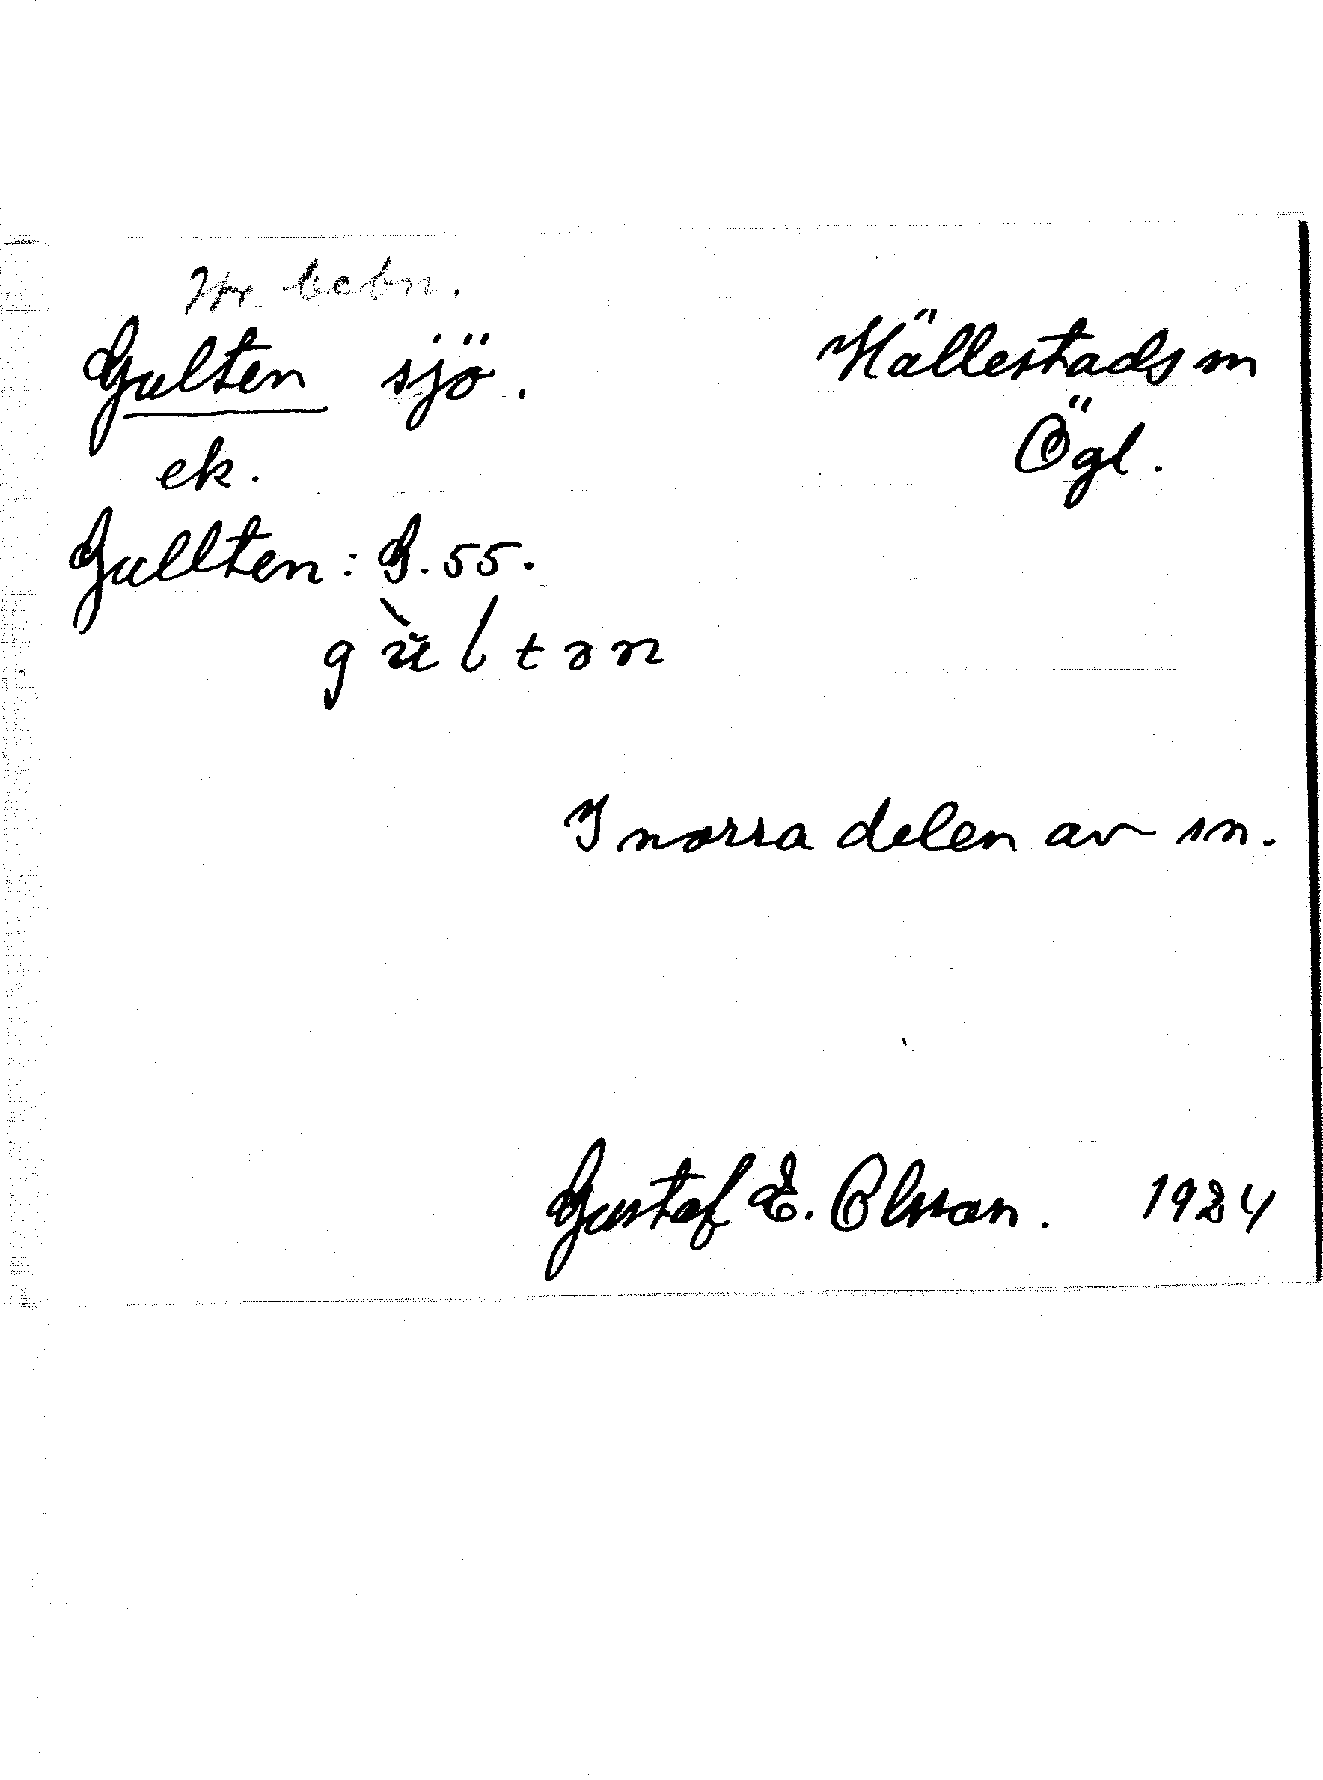 Jfr bebn.
Gulten sjö. Hällestads sn
ek. Ögl.
Gullten: G. 55.
gùltən
I norra delen av sn.
Gustaf E. Olsson. 1924